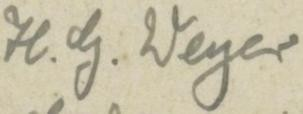 H. G. Weyer